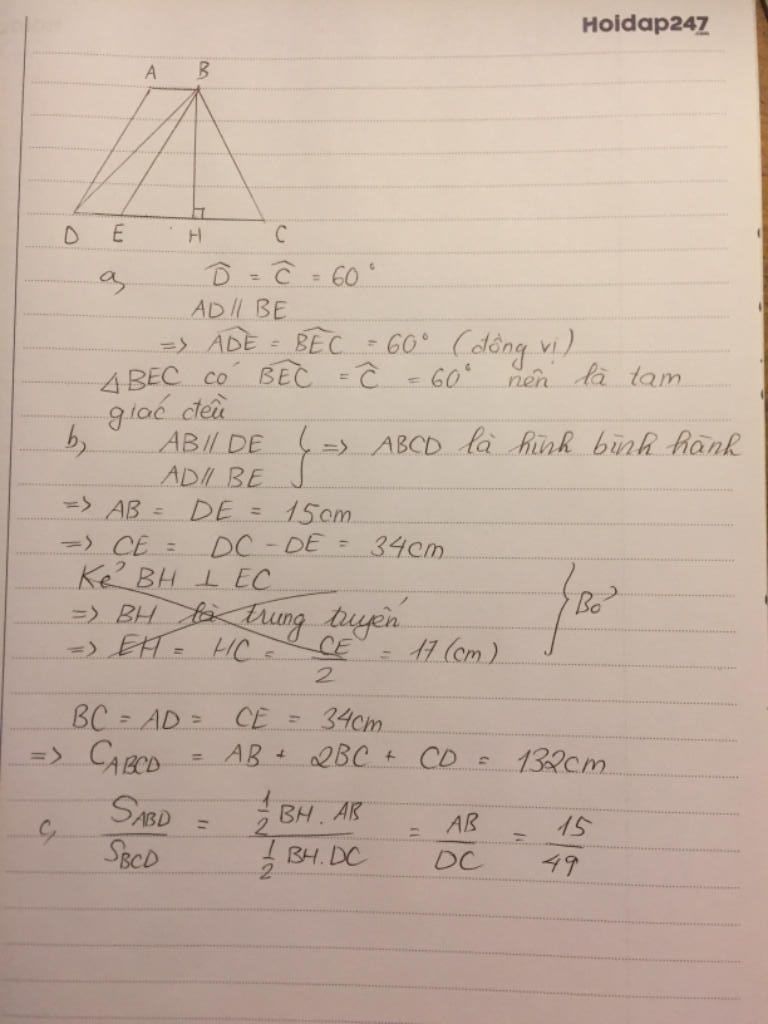 Hoidap247
.com
A B
D E H C
a, D̂ = Ĉ = 60°
AD // BE
=> ADE^ = BEC^ = 60° (đồng vị)
△BEC có BEC^ = Ĉ = 60° nên là tam
giác đều
b, AB // DE } => ABCD là hình bình hành
AD // BE
=> AB = DE = 15cm
=> CE = DC - DE = 34cm
Kẻ BH ⊥ EC
=> BH là trung tuyến } Bỏ
=> EH = HC = CE/2 = 17 (cm)
BC = AD = CE = 34cm
=> C_ABCD = AB + 2BC + CD = 132cm
c, S_ABD/S_BCD = (1/2 BH . AB)/(1/2 BH . DC) = AB/DC = 15/49